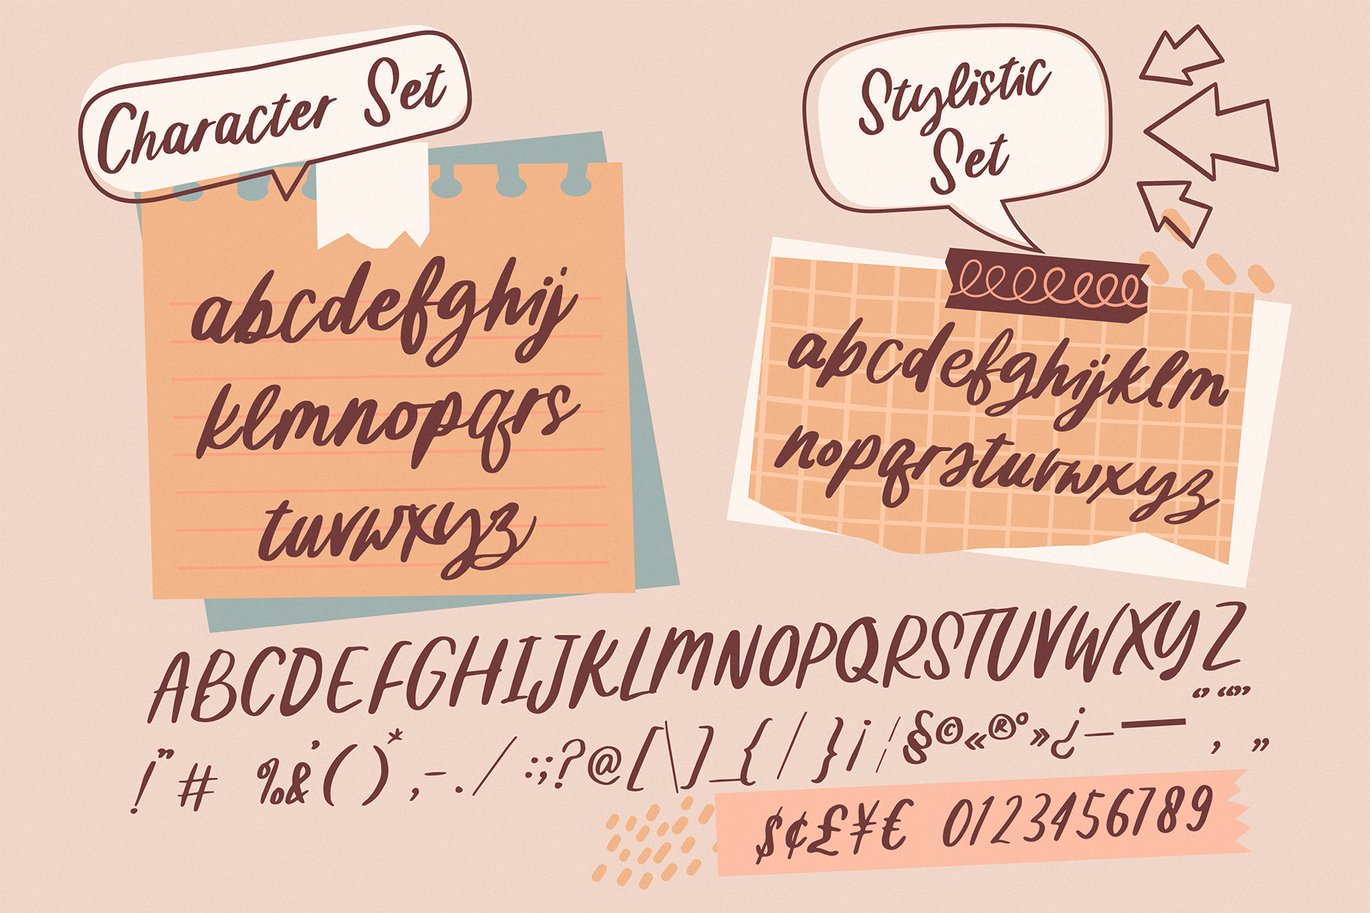 Character Set
abcdefghij
klmnopqrs
tuvwxyz
Stylistic
Set
abcdefghijklm
nopqrstuvwxyz
ABCDEFGHIJKLMNOPQRSTUVWXYZ
‘’ “”
!"#%&'()*,-./:;?@[\]_{|}¡¦§©«®°»¿–— ‚ „
$¢£¥€ 0123456789